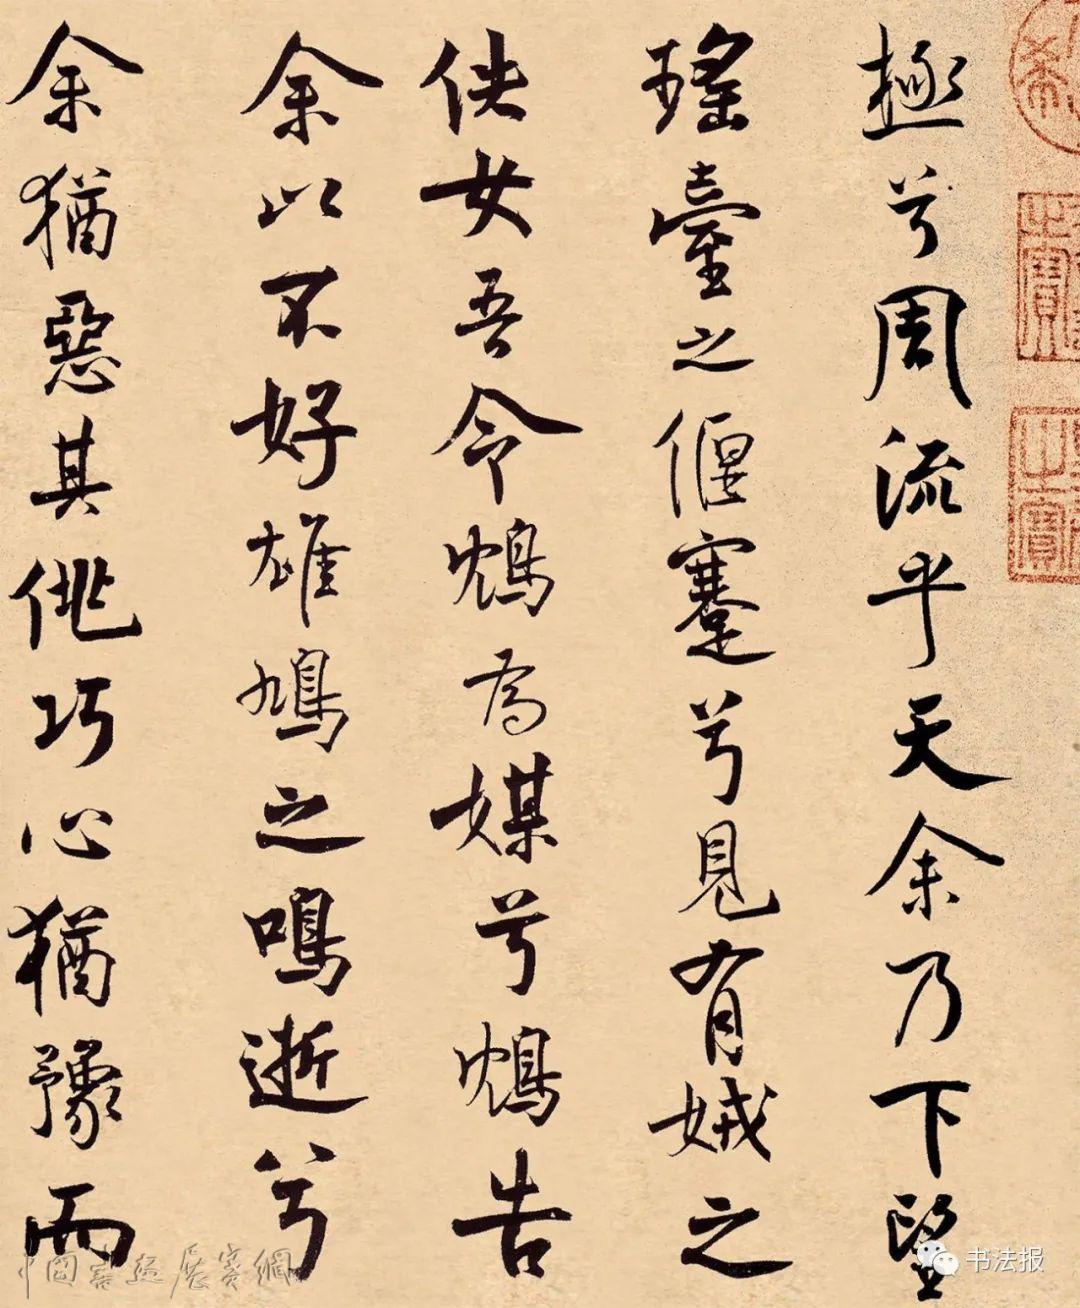 極兮周流乎天余乃下望
瑤臺之偃蹇兮見有娀之
佚女吾令鴆為媒兮鴆告
余以不好雄鳩之鳴逝兮
余猶惡其佻巧心猶豫而
之寶
之寶
中国書画展賽網
书法报